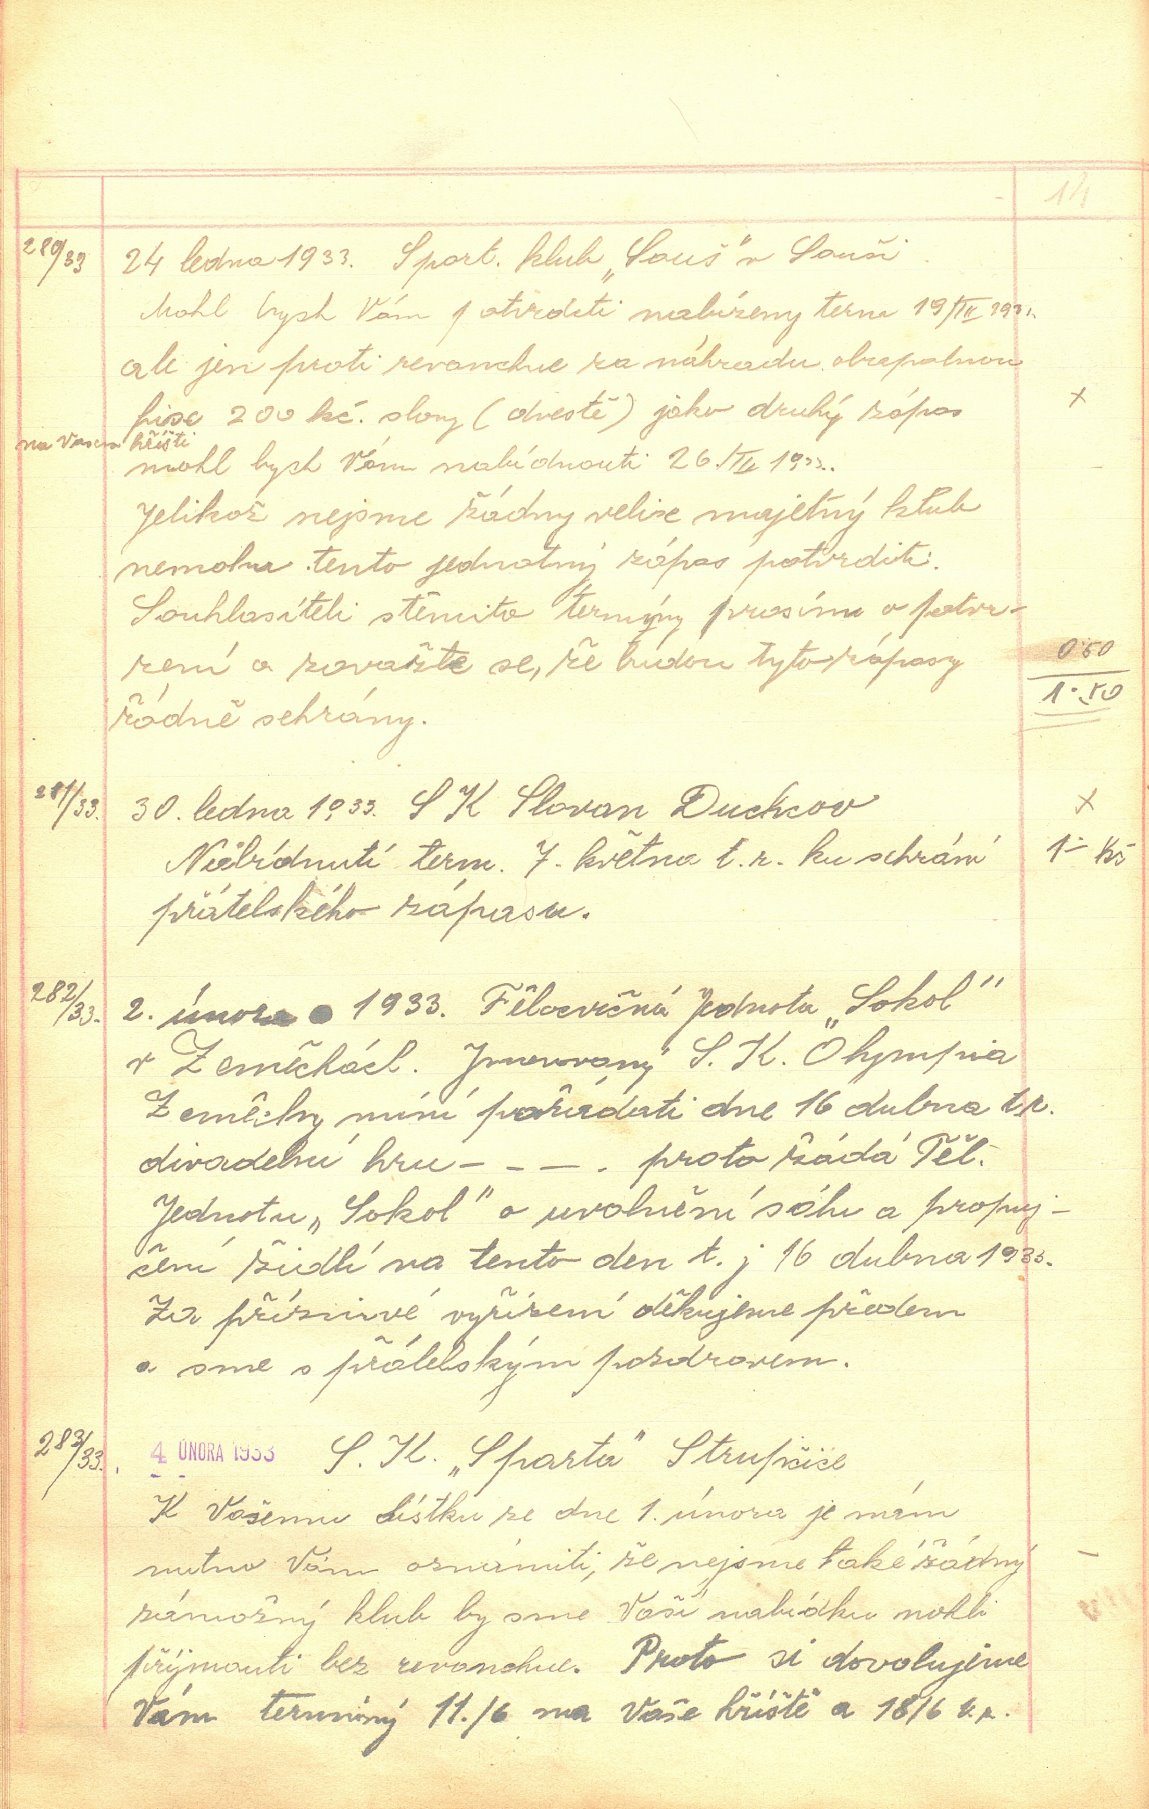 14
280/33 24 ledna 1933. Sport. klub „Souš" v Souši
Mohl bych Vám potvrditi nabízeny term 19/III 1933.
ale jen proti revanchue za náhradu obapolnou
200 kč. slovy (dvestě) jako druhý zápas x
na Vašem hřišti
mohl bych Vám nabídnouti 26./III 1933.
Jelikož nejsme žádny velice majetný klub
nemohu tento jednotný zápas potvrditi.
Souhlasíteli stěmito termýny prosímu o potvr-
zení a zavažte se, že budou tyto zápasy 0·50
řádně sehrány. 1·50
281/33. 30. ledna 1933. S K Slovan Duchcov x
Nabídnutí term. 7. května t.r. ku sehrání 1- Kč
přátelského zápasu.
282/33. 2. února 1933. Tělocvičná Jednota „Sokol"
v Zeměchách. Jmenovaný S. K. Olympia
Zeměchy míní pořádati dne 16 dubna t.r.
divadelní hru - - - - . proto žádá Těl.
Jednotu „Sokol" o uvolnění sálu a propuj-
čení židlí na tento den t. j 16 dubna 1933.
Za příznivé vyřízení děkujeme předem
a sme s přátelským pozdravem.
283/33. 4 ÚNORA 1933 S. K. „Sparta" Strupčice
K Vašemu lístku ze dne 1. února je nám
nutno Vám oznámiti, že nejsme také žádný -
zámožný klub by sme Vaší nabídku mohli
příjmouti bez revanchue. Proto si dovolujeme
Vám termíný 11./6 na Vaše hřiště a 18/6 t.r.